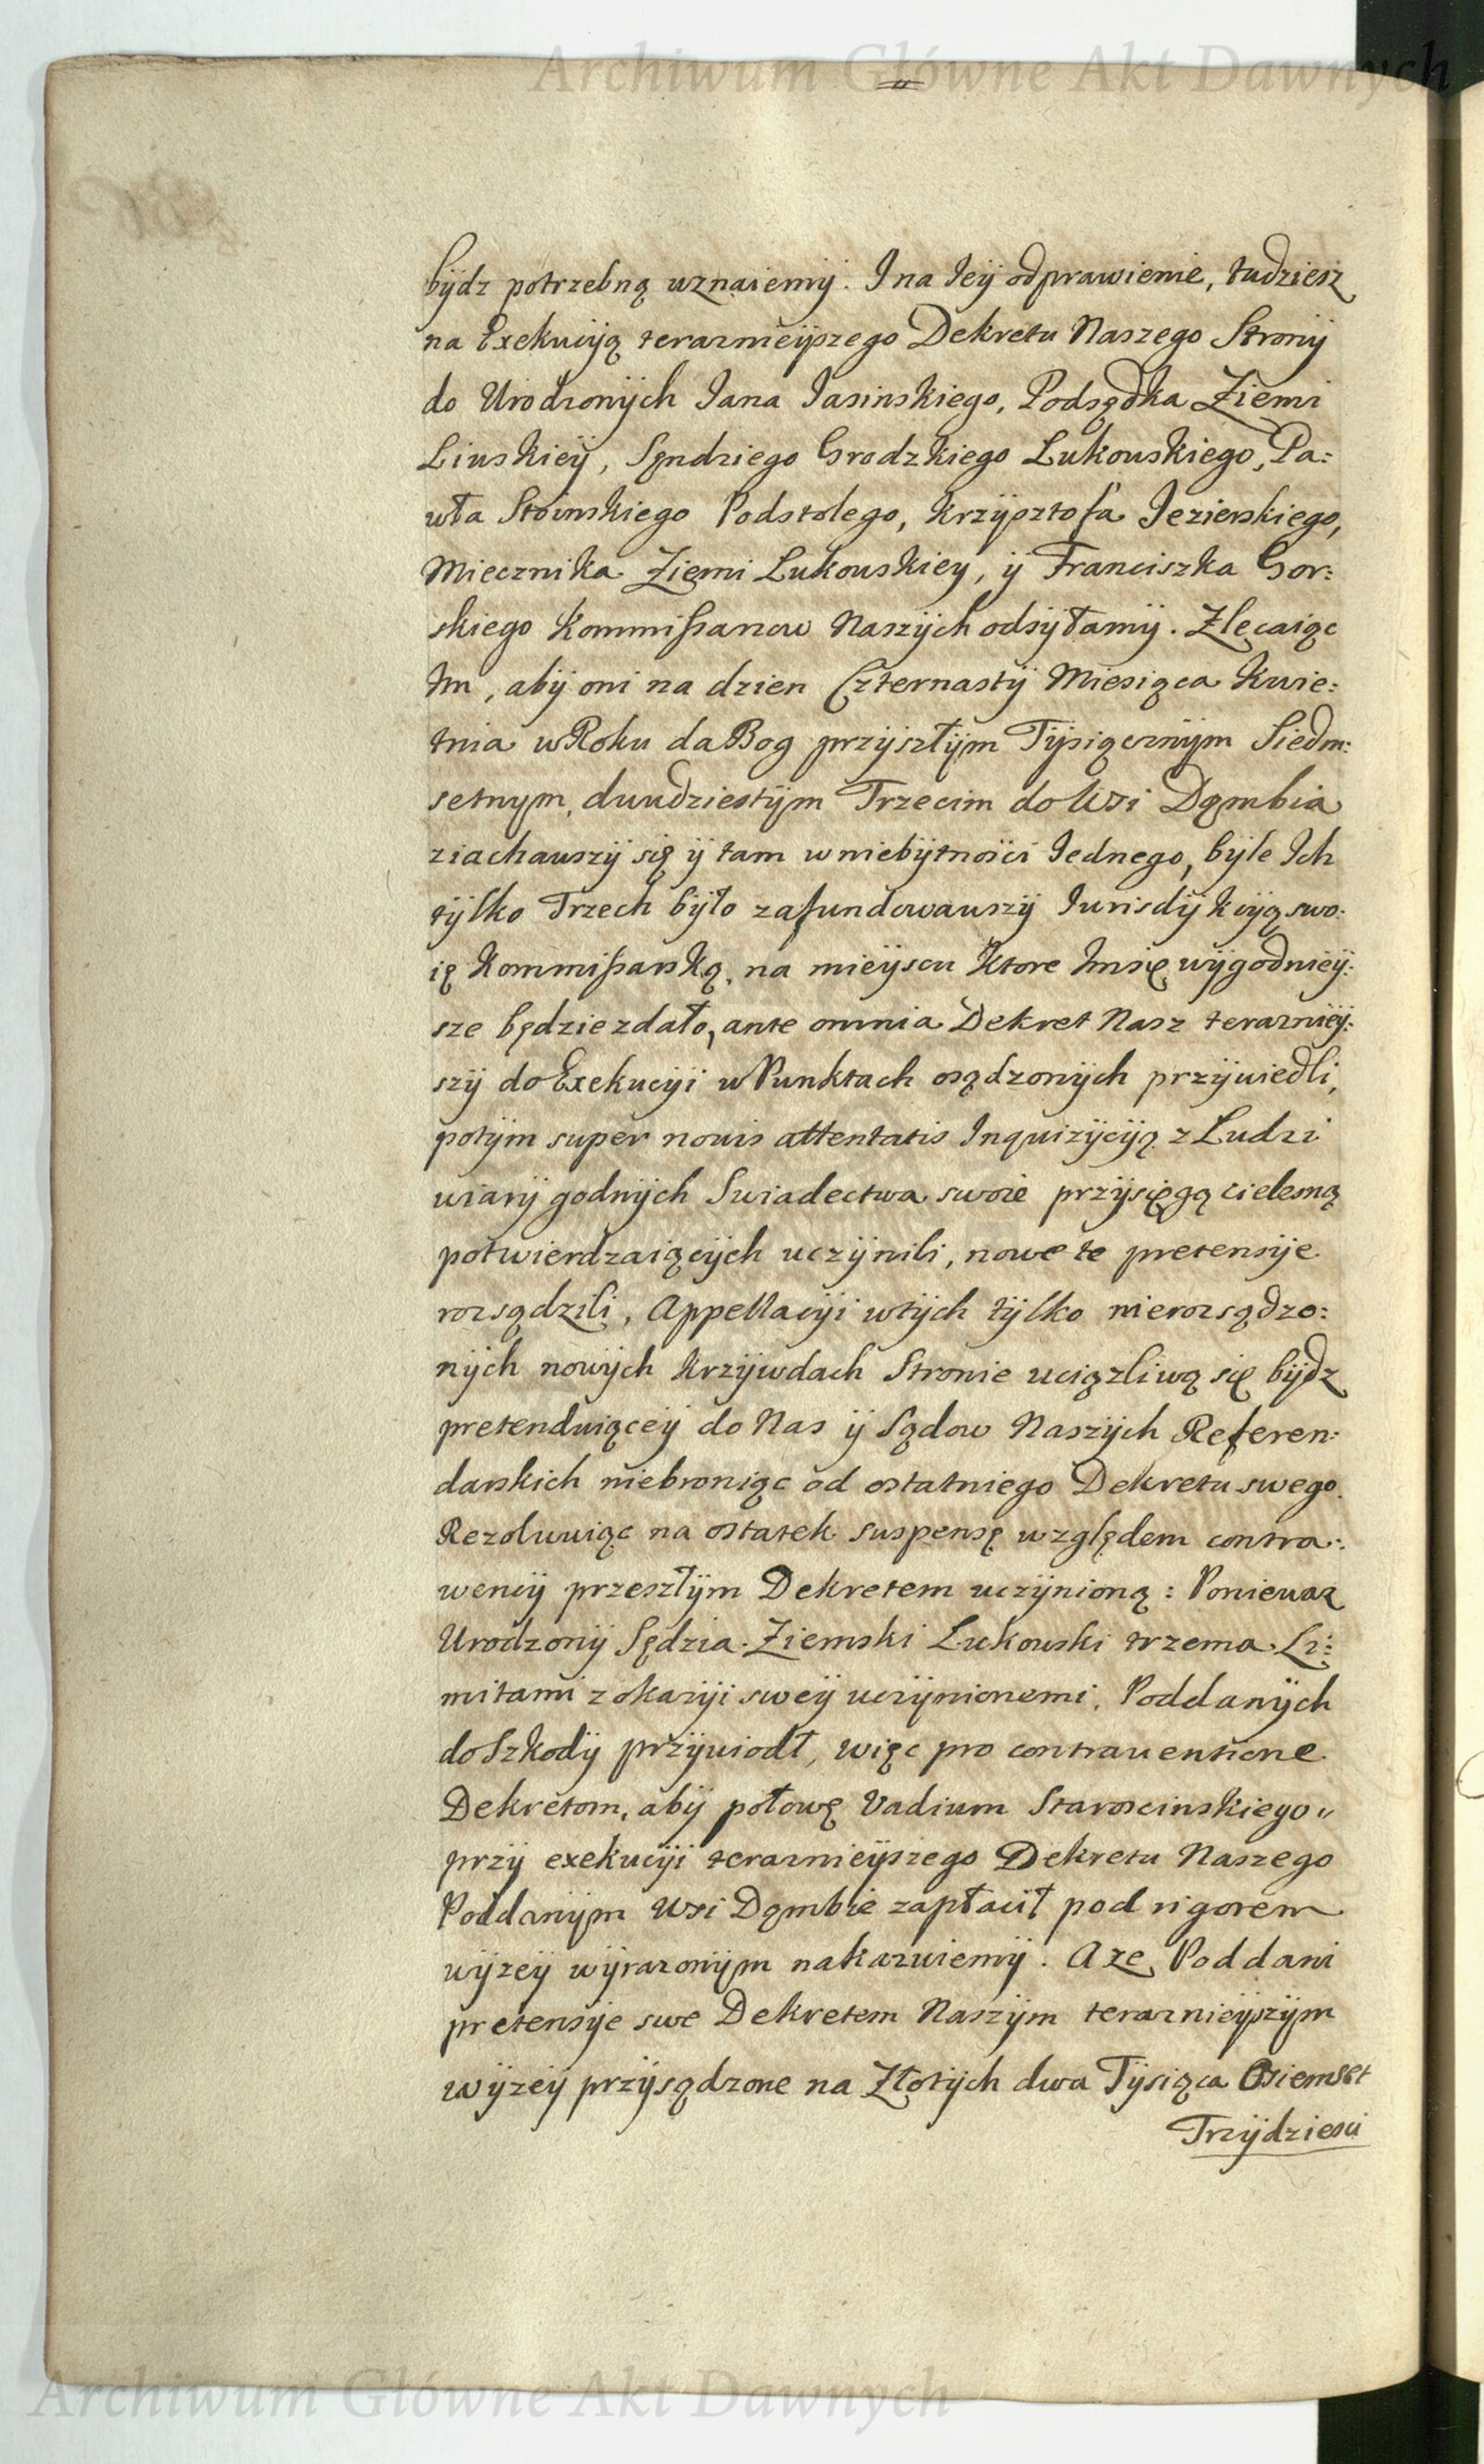 Archiwum Główne Akt Dawnych
bÿdz potrzebną uznaiemÿ. I na Ieÿ odprawienie, tudziesz
na Exekucÿą teraznieÿszego Dekretu Naszego Stronÿ
do Urodzonÿch Iana Iasinskiego, Podsędka Ziemi
Liwskieÿ, Sęndziego Grodzkiego Lukowskiego, Pa:
wła Stoinskiego Podstolego, Krzÿsztofa Iezierskiego,
Miecznika Ziemi Lukowskiey, ÿ Franciszka Gor:
skiego Kommißarzow Naszÿch odsÿłamÿ. Zlecaiąc
Im, abÿ oni na dzien Czternastÿ Miesiąca Kwie:
tnia w Roku da Bog przÿszłÿm Tÿsiącznÿm Siedm:
setnym, dwudziestÿm Trzecim do Wsi Dąmbia
ziachawszÿ się ÿ tam w niebÿtnosci Iednego, bÿle Ich
tÿlko Trzech bÿło zafundowawszÿ Iurisdÿkcÿą swo:
ię Kommißarską, na mieÿscu Ktore Imsię wÿgodnieÿ:
sze będzie zdało, ante omnia Dekret Nasz teraznieÿ:
szÿ do Exekucÿi w Punktach osądzonÿch przÿwiedli,
potÿm super novis attentatis Inquizÿcÿą z Ludzi
wiarÿ godnÿch Swiadectwa swoie przÿsięgą cielesną
potwierdzaiącÿch uczÿnili, nowe te pretensÿe
rozsądzili, Appellacÿi wtÿch tÿlko nierozsądzo:
nÿch nowÿch Krzÿwdach Stronie uciązliwą się bÿdz
pretenduiąceÿ do Nas ÿ Sądow Naszÿch Referen:
darskich niebroniąc od ostatniego Dekretu swego.
Rezolwuiąc na ostatek suspensę względem contra:
wencÿ przeszłÿm Dekretem uczÿnioną: Poniewaz
Urodzonÿ Sędzia Ziemski Lukowski trzema Li:
mitami z okazÿi sweÿ uczÿnionemi, Poddanÿch
do Szkodÿ przÿwiodł, więc pro contraventione
Dekretom, abÿ połowę Vadium Staroscinskiego
przÿ exekucÿi teraznieÿszego Dekretu Naszego
Poddanÿm Wsi Dąmbie zapłacił pod rigorem
wÿzeÿ wÿrazonÿm nakazuiemÿ. A ze Poddani
pretensÿe swe Dekretem Naszÿm teraznieÿszÿm
wÿzeÿ przÿsądzone na Złotÿch dwa Tÿsiąca Osiemset
Trzÿdziesci
Archiwum Główne Akt Dawnych